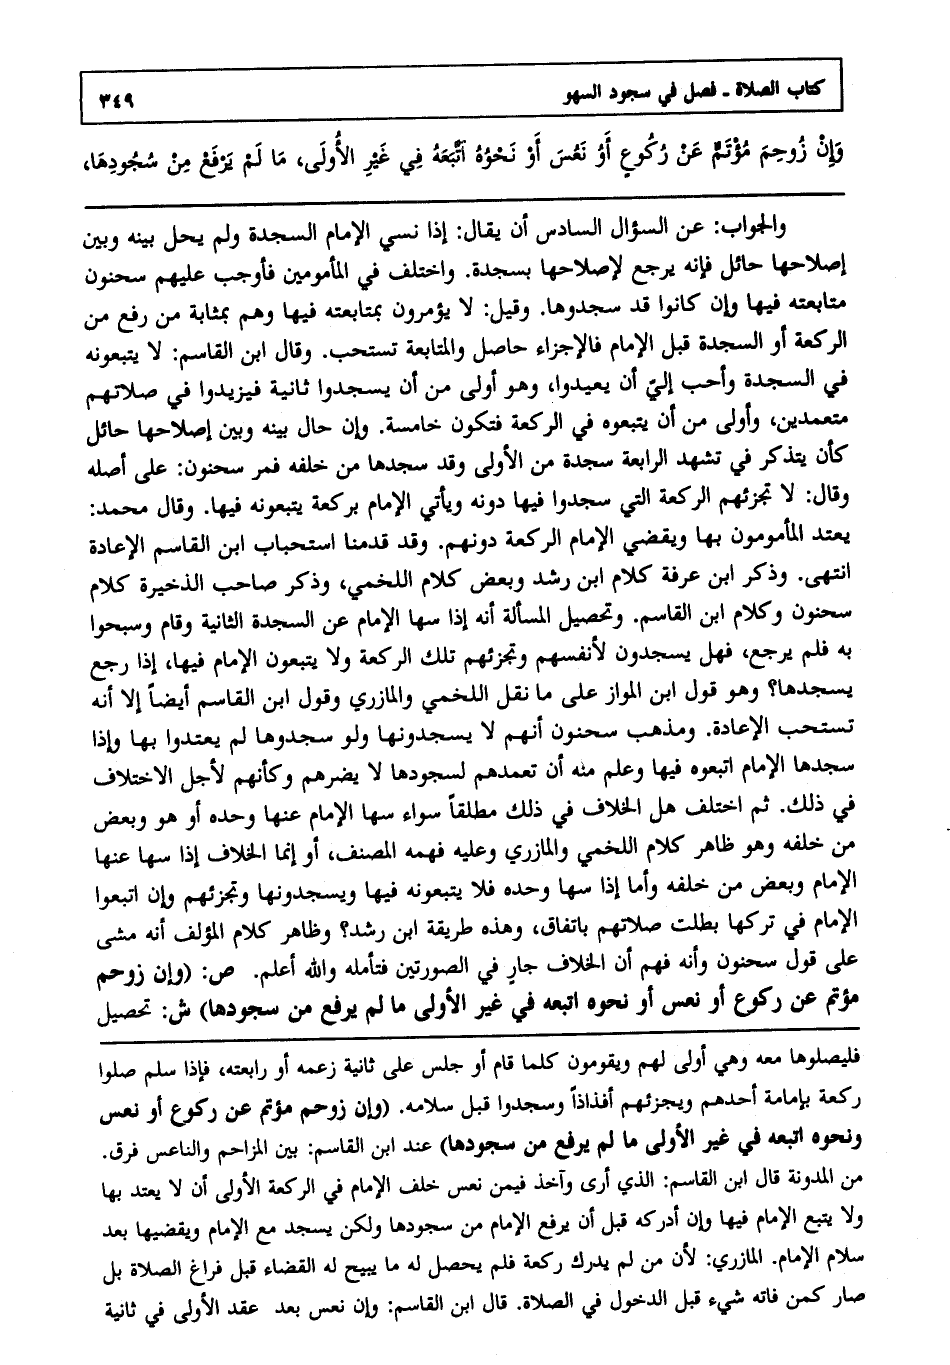 كتاب الصلاة ـ فصل في سجود السهو
٣٤٩
وَإِنْ زُوحِمَ مُؤْتَمٌّ عَنْ رُكُوعٍ أَوْ نَعُسَ أَوْ نَحْوُهُ اتَّبَعَهُ فِي غَيْرِ الأُولَى، مَا لَمْ يَرْفَعْ مِنْ سُجُودِهَا،
والجواب: عن السؤال السادس أن يقال: إذا نسي الإمام السجدة ولم يحل بينه وبين
إصلاحها حائل فإنه يرجع لإصلاحها بسجدة. واختلف في المأمومين فأوجب عليهم سحنون
متابعته فيها وإن كانوا قد سجدوها. وقيل: لا يؤمرون بمتابعته فيها وهم بمثابة من رفع من
الركعة أو السجدة قبل الإمام فالإجزاء حاصل والمتابعة تستحب. وقال ابن القاسم: لا يتبعونه
في السجدة وأحب إليّ أن يعيدوا، وهو أولى من أن يسجدوا ثانية فيزيدوا في صلاتهم
متعمدين، وأولى من أن يتبعوه في الركعة فتكون خامسة. وإن حال بينه وبين إصلاحها حائل
كأن يتذكر في تشهد الرابعة سجدة من الأولى وقد سجدها من خلفه فمر سحنون: على أصله
وقال: لا تجزئهم الركعة التي سجدوا فيها دونه ويأتي الإمام بركعة يتبعونه فيها. وقال محمد:
يعتد المأمومون بها ويقضي الإمام الركعة دونهم. وقد قدمنا استحباب ابن القاسم الإعادة
انتهى. وذكر ابن عرفة كلام ابن رشد وبعض كلام اللخمي، وذكر صاحب الذخيرة كلام
سحنون وكلام ابن القاسم. وتحصيل المسألة أنه إذا سها الإمام عن السجدة الثانية وقام وسبحوا
به فلم يرجع، فهل يسجدون لأنفسهم وتجزئهم تلك الركعة ولا يتبعون الإمام فيها، إذا رجع
يسجدها؟ وهو قول ابن المواز على ما نقل اللخمي والمازري وقول ابن القاسم أيضاً إلا أنه
تستحب الإعادة. ومذهب سحنون أنهم لا يسجدونها ولو سجدوها لم يعتدوا بها وإذا
سجدها الإمام اتبعوه فيها وعلم منه أن تعمدهم لسجودها لا يضرهم وكأنهم لأجل الاختلاف
في ذلك. ثم اختلف هل الخلاف في ذلك مطلقاً سواء سها الإمام عنها وحده أو هو وبعض
من خلفه وهو ظاهر كلام اللخمي والمازري وعليه فهمه المصنف، أو إنما الخلاف إذا سها عنها
الإمام وبعض من خلفه وأما إذا سها وحده فلا يتبعونه فيها ويسجدونها وتجزئهم وإن اتبعوا
الإمام في تركها بطلت صلاتهم باتفاق، وهذه طريقة ابن رشد؟ وظاهر كلام المؤلف أنه مشى
على قول سحنون وأنه فهم أن الخلاف جارٍ في الصورتين فتأمله والله أعلم. ص: (وإن زوحم
مؤتم عن ركوع أو نعس أو نحوه اتبعه في غير الأولى ما لم يرفع من سجودها) ش: تحصيل
فليصلوها معه وهي أولى لهم ويقومون كلما قام أو جلس على ثانية زعمه أو رابعته، فإذا سلم صلوا
ركعة بإمامة أحدهم ويجزئهم أفذاذاً وسجدوا قبل سلامه. (وإن زوحم مؤتم عن ركوع أو نعس
ونحوه اتبعه في غير الأولى ما لم يرفع من سجودها) عند ابن القاسم: بين المزاحم والناعس فرق.
من المدونة قال ابن القاسم: الذي أرى وآخذ فيمن نعس خلف الإمام في الركعة الأولى أن لا يعتد بها
ولا يتبع الإمام فيها وإن أدركه قبل أن يرفع الإمام من سجودها ولكن يسجد مع الإمام ويقضيها بعد
سلام الإمام. المازري: لأن من لم يدرك ركعة فلم يحصل له ما يبيح له القضاء قبل فراغ الصلاة بل
صار كمن فاته شيء قبل الدخول في الصلاة. قال ابن القاسم: وإن نعس بعد عقد الأولى في ثانية